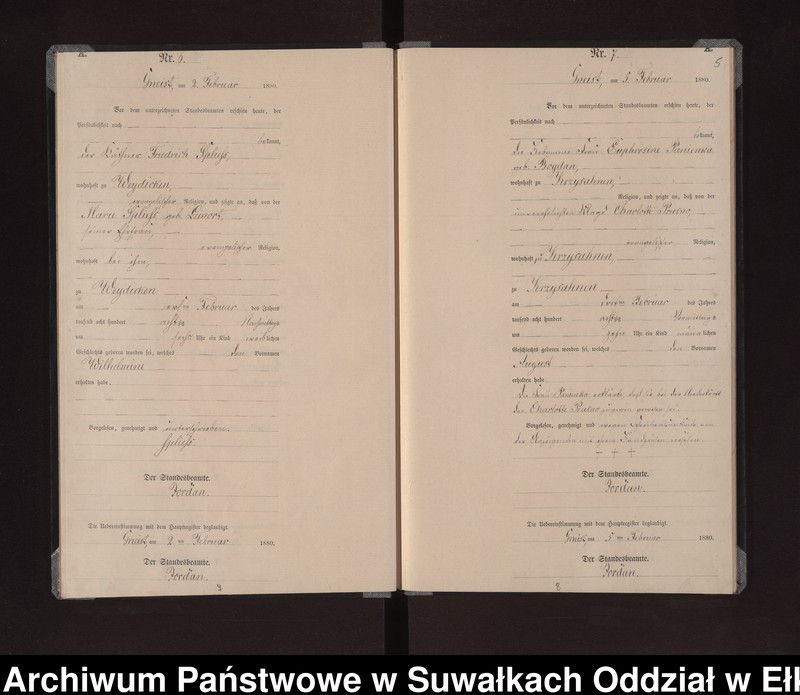 A.
Nr. 6.
Gneist, am 2. Februar 1880.
Vor dem unterzeichneten Standesbeamten erschien heute, der
Persönlichkeit nach
bekannt,
der Käthner Friedrich Spließ,
wohnhaft zu Weydicken,
evangelischer Religion, und zeigte an, daß von der
Marie Spließ geb.
seiner Ehefrau,
evangelischer Religion,
wohnhaft bei ihm,
zu Weydicken
am ersten Februar des Jahres
tausend acht hundert achtzig Nachmittags
um sechs Uhr ein Kind weiblichen
Geschlechts geboren worden sei, welches den Vornamen
Wilhelmine
erhalten habe.
Vorgelesen, genehmigt und unterschrieben
Spließ
Der Standesbeamte.
Jordan.
Die Uebereinstimmung mit dem Hauptregister beglaubigt.
Gneist, am 2ten Februar 1880.
Der Standesbeamte.
Jordan.
7
A.
5
Nr. 7.
Gneist, am 5. Februar 1880.
Vor dem unterzeichneten Standesbeamten erschien heute, der
Persönlichkeit nach
bekannt,
die Hebamme Frau Euphrosine Panienka
geb. Bogdan,
wohnhaft zu Skrzysahnen,
Religion, und zeigte an, daß von der
unverehelichten Magd Charlotte
evangelischer Religion,
wohnhaft zu Skrzysahnen,
zu Skrzysahnen
am dritten Februar des Jahres
tausend acht hundert achtzig Vormittags
um zehn Uhr ein Kind männlichen
Geschlechts geboren worden sei, welches den Vornamen
August
erhalten habe.
Die Frau Panienka erklärte, daß sie bei der Niederkunft
der Charlotte zugegen gewesen sei.
Vorgelesen, genehmigt und wegen Schreibensunkunde von
der Anzeigenden mit ihrem Handzeichen versehen.
+ + +
Der Standesbeamte.
Jordan.
Die Uebereinstimmung mit dem Hauptregister beglaubigt.
Gneist, am 5ten Februar 1880.
Der Standesbeamte.
Jordan.
8
Archiwum Państwowe w Suwałkach Oddział w Eł